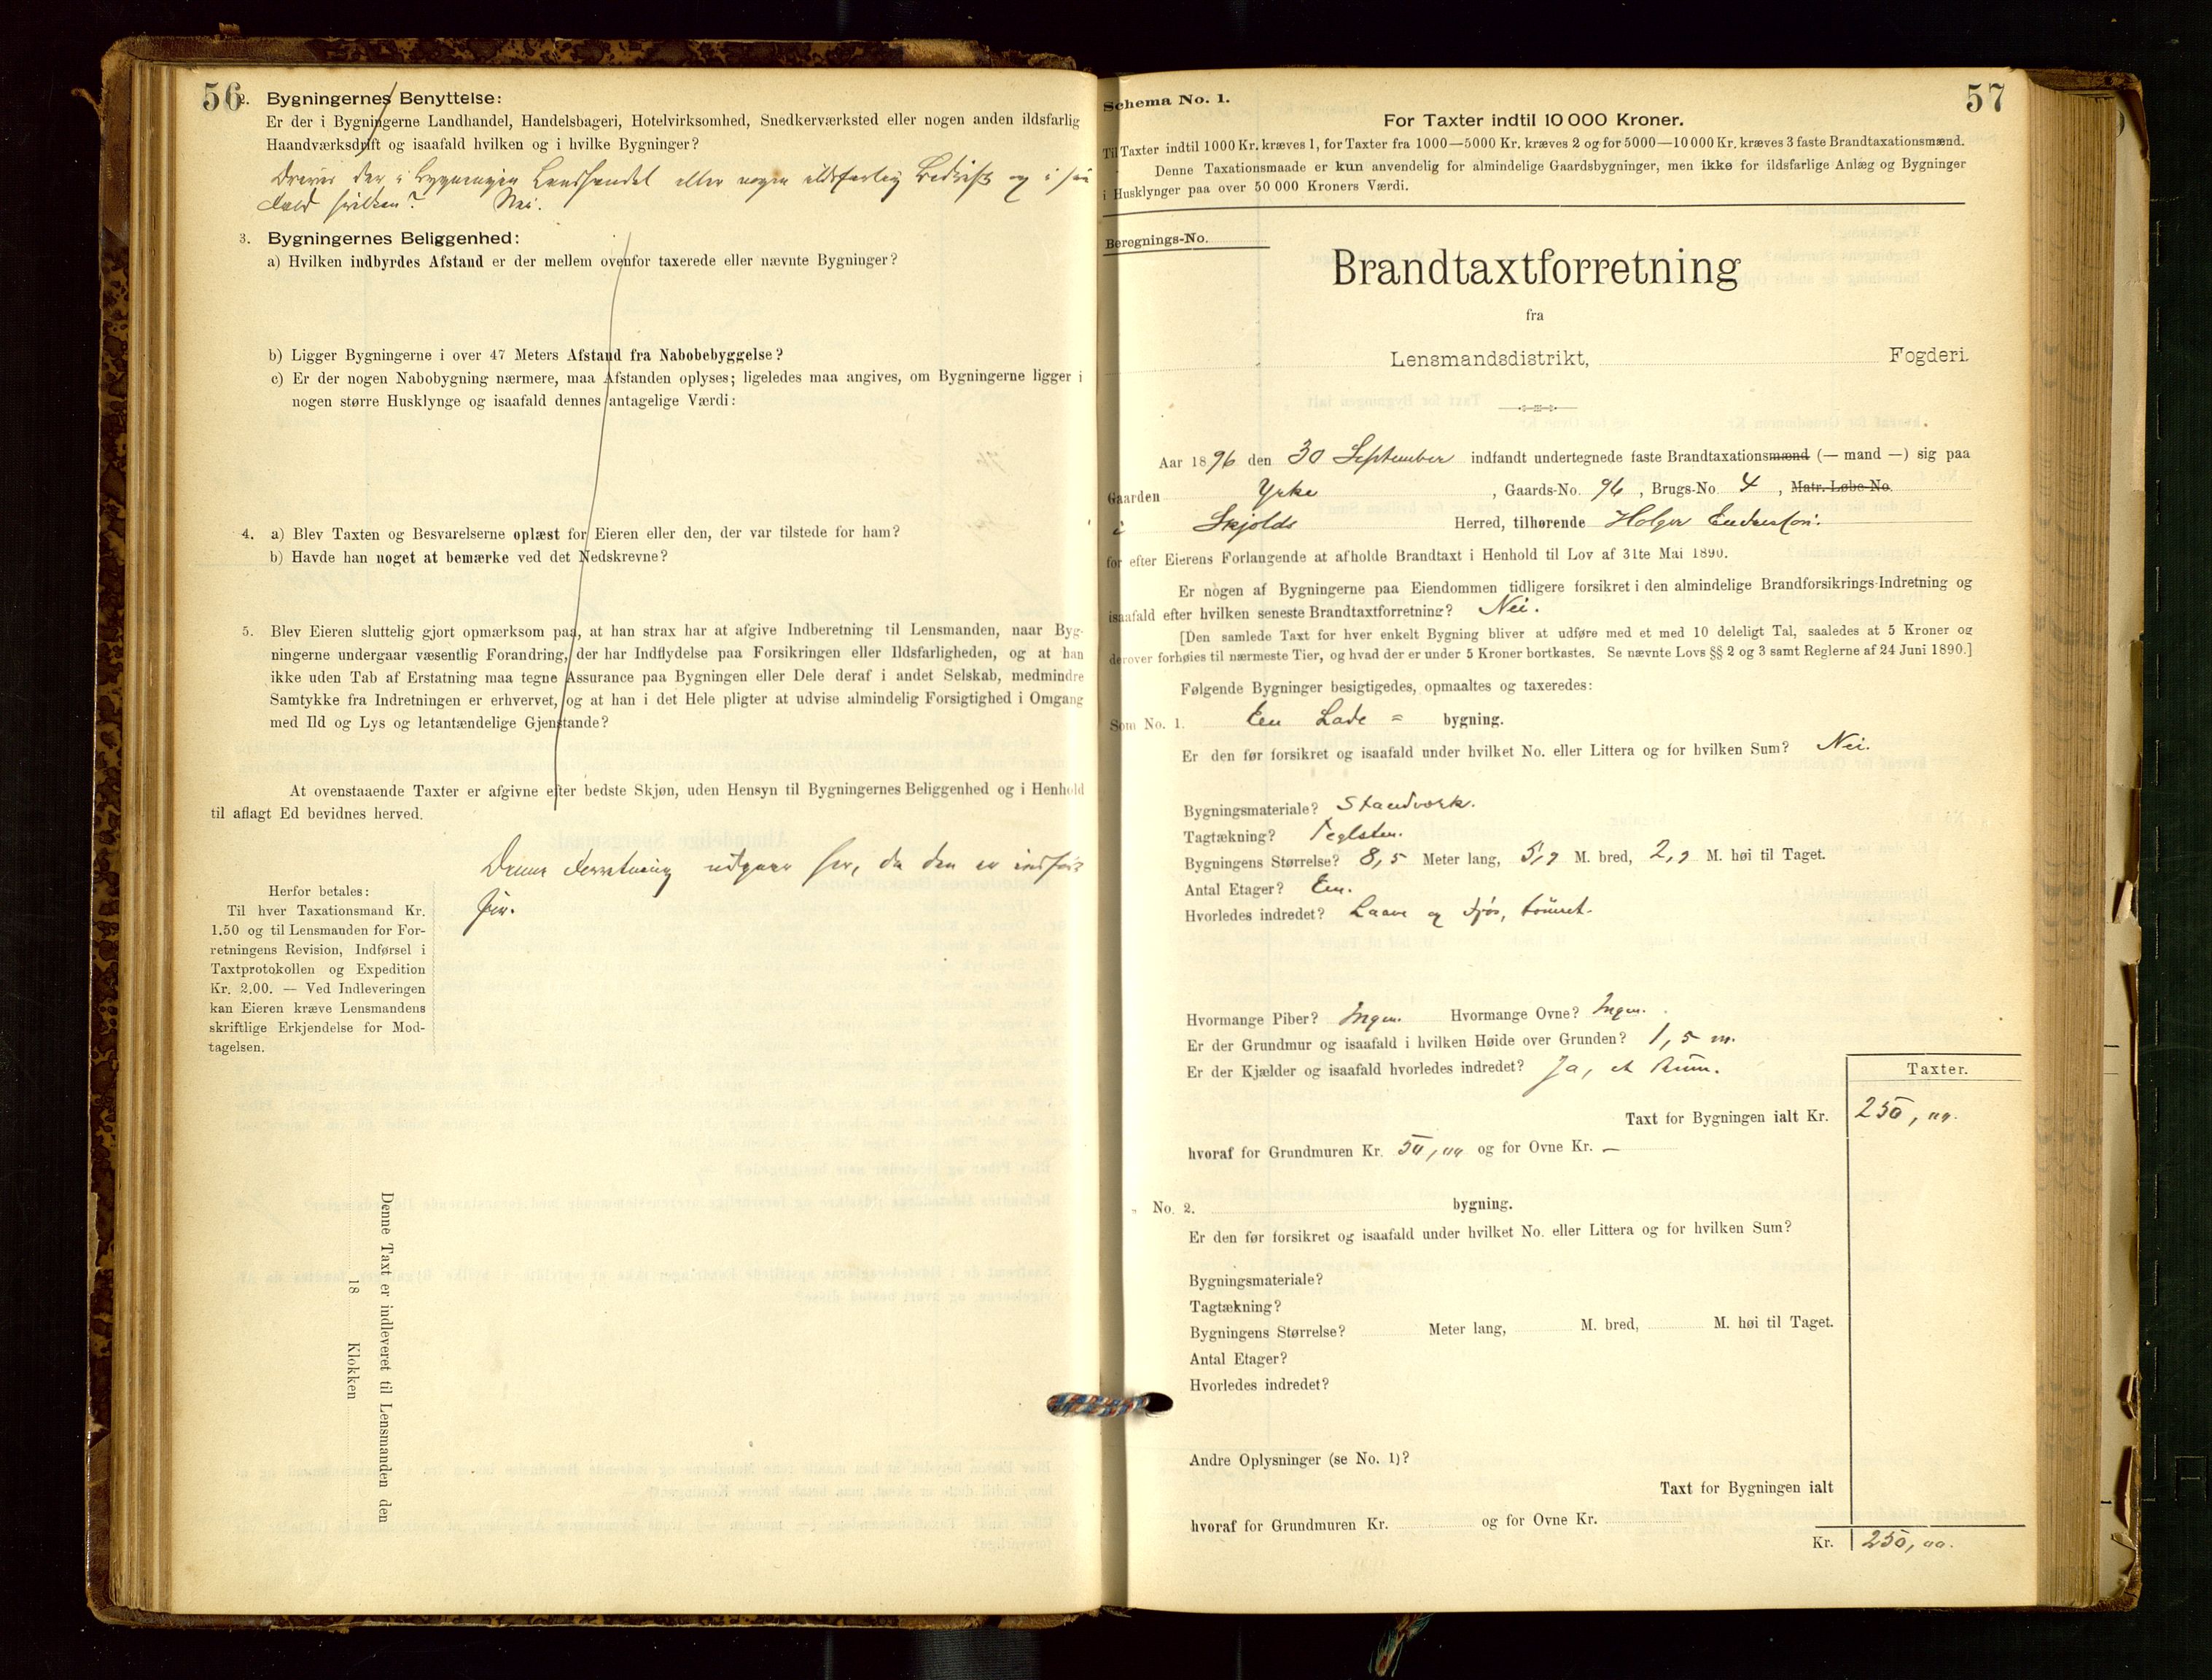 56
2. Bygningernes Benyttelse:
Er der i Bygningerne Landhandel, Handelsbageri, Hotelvirksomhed, Snedkerværksted eller nogen anden ildsfarlig
Haandværksdrift og isaafald hvilken og i hvilke Bygninger?
Drives der i Bygningen Landhandel eller nogen ildsfarlig Bedrift og i saa
Fald hvilken? Nei.
3. Bygningernes Beliggenhed:
a) Hvilken indbyrdes Afstand er der mellem ovenfor taxerede eller nævnte Bygninger?
b) Ligger Bygningerne i over 47 Meters Afstand fra Nabobebyggelse?
c) Er der nogen Nabobygning nærmere, maa Afstanden oplyses; ligeledes maa angives, om Bygningerne ligger i
nogen større Husklynge og isaafald dennes antagelige Værdi:
4. a) Blev Taxten og Besvarelserne oplæst for Eieren eller den, der var tilstede for ham?
b) Havde han noget at bemærke ved det Nedskrevne?
5. Blev Eieren sluttelig gjort opmærksom paa, at han strax har at afgive Indberetning til Lensmanden, naar Byg-
ningerne undergaar væsentlig Forandring, der har Indflydelse paa Forsikringen eller Ildsfarligheden, og at han
ikke uden Tab af Erstatning maa tegne Assurance paa Bygningen eller Dele deraf i andet Selskab, medmindre
Samtykke fra Indretningen er erhvervet, og at han i det Hele pligter at udvise almindelig Forsigtighed i Omgang
med Ild og Lys og letantændelige Gjenstande?
At ovenstaaende Taxter er afgivne efter bedste Skjøn, uden Hensyn til Bygningernes Beliggenhed og i Henhold
til aflagt Ed bevidnes herved.
Denne Forretning udgaar her, da den er indført
før.
Herfor betales:
Til hver Taxationsmand Kr.
1.50 og til Lensmanden for For-
retningens Revision, Indførsel i
Taxtprotokollen og Expedition
Kr. 2.00. — Ved Indleveringen
kan Eieren kræve Lensmandens
skriftlige Erkjendelse for Mod-
tagelsen.
Denne Taxt er indleveret til Lensmanden den
18 Klokken
57
Schema No. 1.
For Taxter indtil 10 000 Kroner.
Til Taxter indtil 1000 Kr. kræves 1, for Taxter fra 1000—5000 Kr. kræves 2 og for 5000—10 000 Kr. kræves 3 faste Brandtaxationsmænd.
Denne Taxationsmaade er kun anvendelig for almindelige Gaardsbygninger, men ikke for ildsfarlige Anlæg og Bygninger
i Husklynger paa over 50 000 Kroners Værdi.
Beregnings-No.
Brandtaxtforretning
fra
Lensmandsdistrikt, Fogderi.
Aar 1896 den 30 September indfandt undertegnede faste Brandtaxationsmænd (— mand —) sig paa
Gaarden Yrke, Gaards-No. 96, Brugs-No. 4, Matr.-Løbe-No.
i Skjolds Herred, tilhørende Holger Endresøn.
for efter Eierens Forlangende at afholde Brandtaxt i Henhold til Lov af 31te Mai 1890.
Er nogen af Bygningerne paa Eiendommen tidligere forsikret i den almindelige Brandforsikrings-Indretning og
isaafald efter hvilken seneste Brandtaxtforretning? Nei.
[Den samlede Taxt for hver enkelt Bygning bliver at udføre med et med 10 deleligt Tal, saaledes at 5 Kroner og
derover forhøies til nærmeste Tier, og hvad der er under 5 Kroner bortkastes. Se nævnte Lovs §§ 2 og 3 samt Reglerne af 24 Juni 1890.]
Følgende Bygninger besigtigedes, opmaaltes og taxeredes:
Som No. 1. En Lade = bygning.
Er den før forsikret og isaafald under hvilket No. eller Littera og for hvilken Sum? Nei.
Bygningsmateriale? Standværk.
Tagtækning? Teglsten.
Bygningens Størrelse? 8,5 Meter lang, 5,7 M. bred, 2,7 M. høi til Taget.
Antal Etager? En.
Hvorledes indredet? Laave og Fjøs, tømret.
Hvormange Piber? Ingen. Hvormange Ovne? Ingen.
Er der Grundmur og isaafald i hvilken Høide over Grunden? 1,5 m.
Er der Kjælder og isaafald hvorledes indredet? Ja, et Rum.
Taxter.
Taxt for Bygningen ialt Kr. 250,00.
hvoraf for Grundmuren Kr. 50,00 og for Ovne Kr. —
No. 2. bygning.
Er den før forsikret og isaafald under hvilket No. eller Littera og for hvilken Sum?
Bygningsmateriale?
Tagtækning?
Bygningens Størrelse? Meter lang, M. bred, M. høi til Taget.
Antal Etager?
Hvorledes indredet?
Andre Oplysninger (se No. 1)?
Taxt for Bygningen ialt
hvoraf for Grundmuren Kr. og for Ovne Kr.
Kr. 250,00.